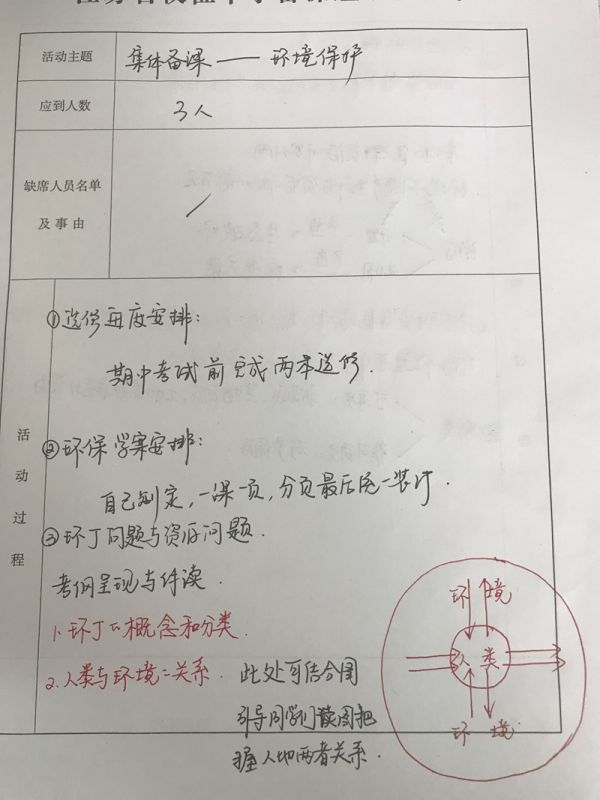 活动主题
集体备课——环境保护
应到人数
3人
缺席人员名单
及事由
/
活动过程
①选修进度安排：
期中考试前完成两本选修.
②环保学案安排：
自己制定，一课一页，分页最后统一装订.
③环丁问题与资源问题.
考纲呈现与解读.
1.环丁的概念和分类.
2.人类与环境的关系.
此处可结合图
引导同学们读图把
握人地两者关系.
环境
人类
环境